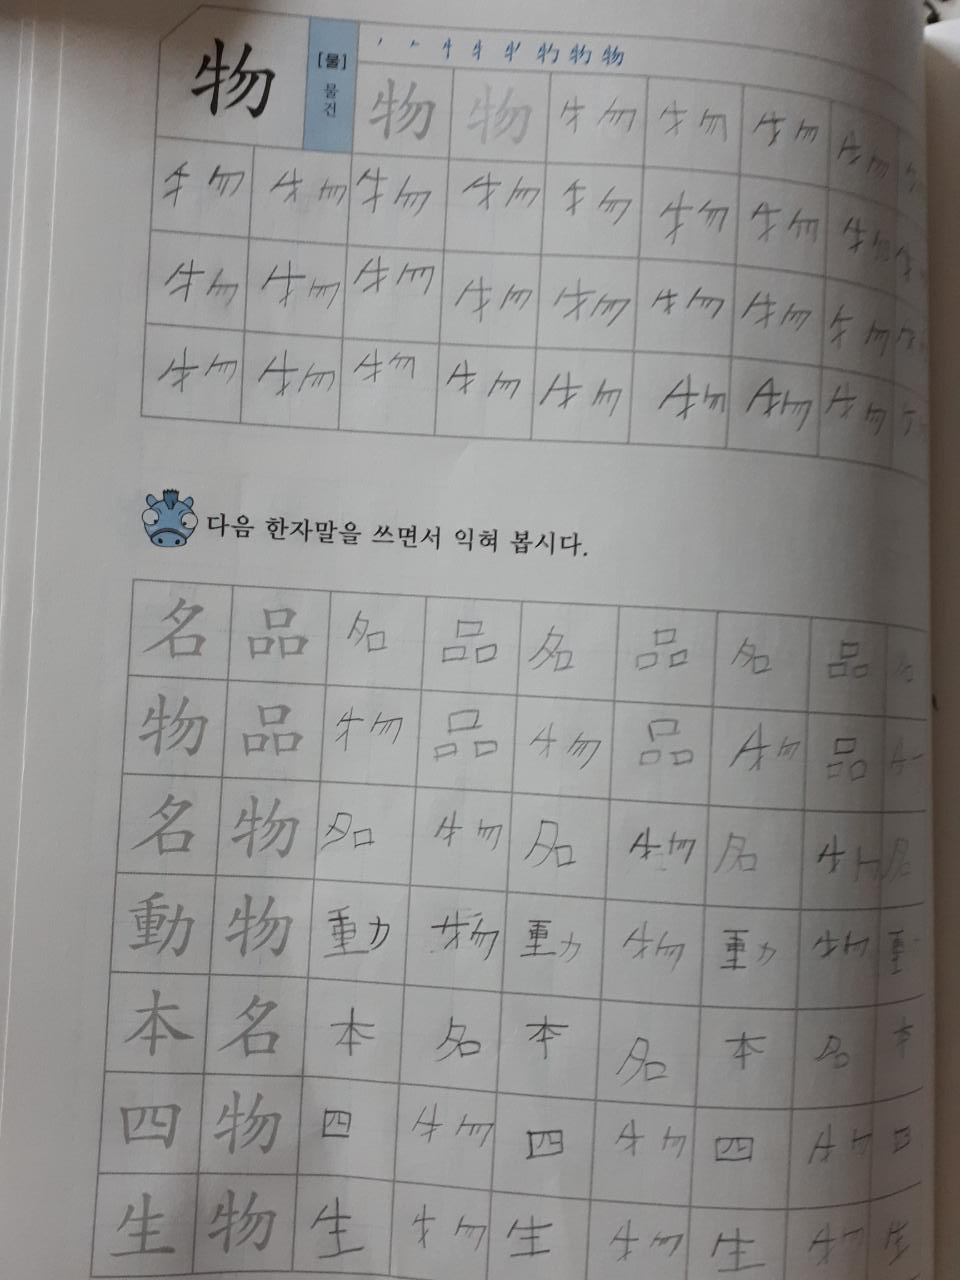 物 [물] 물건
物 物 物 物 物 物
物 物 物 物 物 物 物 物
物 物 物 物 物 物 物 物
物 物 物 物 物 物 物 物
다음 한자말을 쓰면서 익혀 봅시다.
名 品 名 品 名 品 名 品
物 品 物 品 物 品 物 品
名 物 名 物 名 物 名 物
動 物 動 物 動 物 動 物
本 名 本 名 本 名 本 名 本
四 物 四 物 四 物 四 物 四
生 物 生 物 生 物 生 物 生